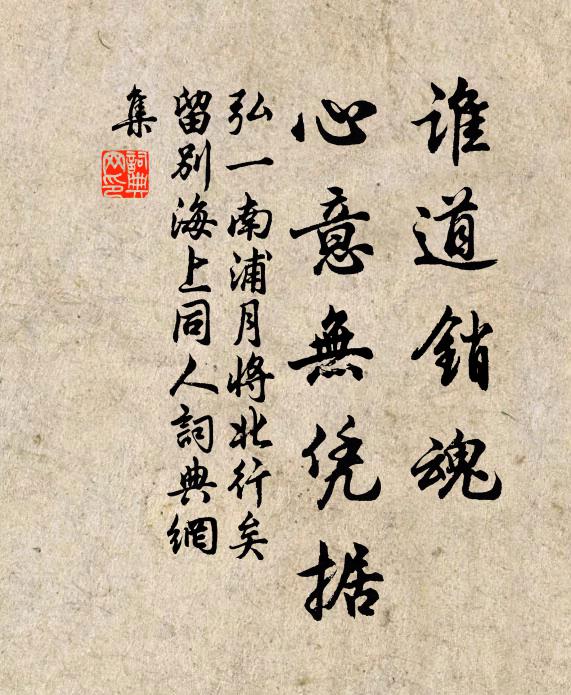 誰道銷魂
心意無凭据
弘一南浦月将北行矣
留別海上同人詞典網
集
詞典
网印